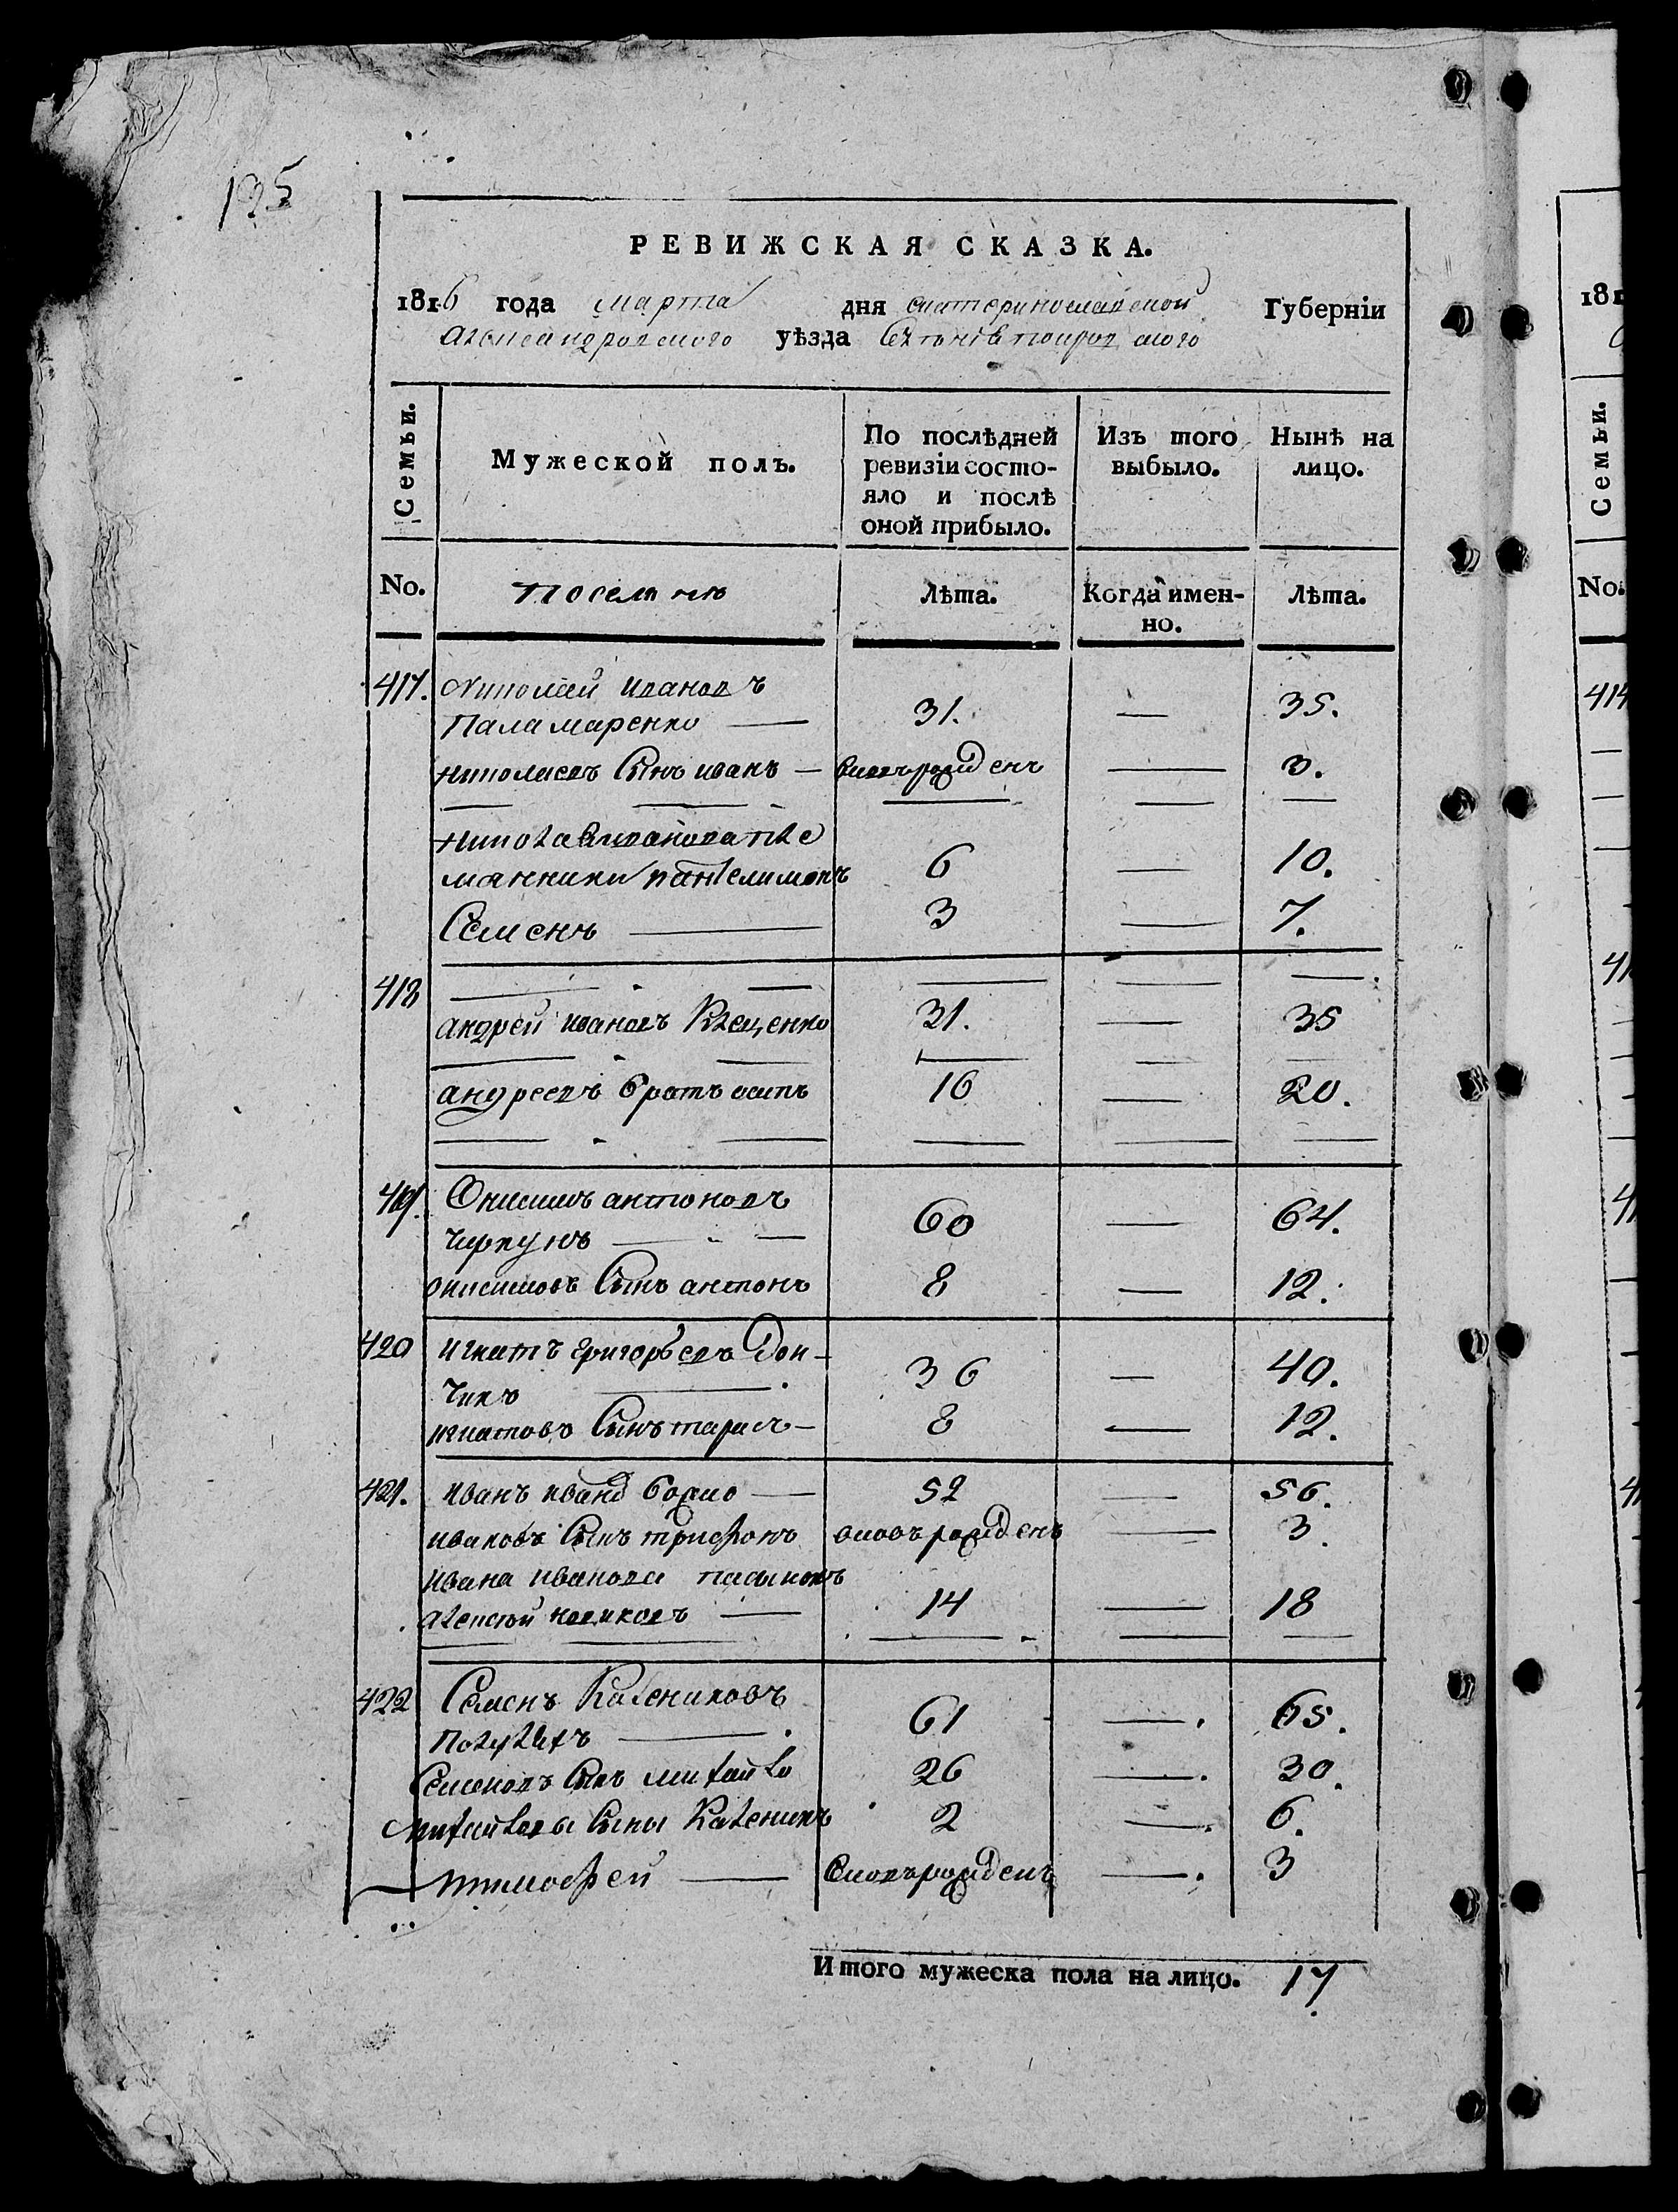 135
РЕВИЖСКАЯ СКАЗКА.
1816 года марта дня екатеринославской Губерніи
александровского уѣзда
Семьи. Мужеской полъ. По послѣдней ревизіи состояло и послѣ оной прибыло. Изъ того выбыло. Нынѣ на лицо.
No. Поселяне Лѣта. Когда именно. Лѣта.
417. Николай ивановъ
Паламаренко — 31. — 35.
николаевъ Сынъ иванъ — вновърожденъ — 3.
николая иванова пле
мянники пантелимонъ 6 — 10.
Семенъ — 3 — 7.
418
андрей ивановъ Клещенко 31. — 35
андреевъ братъ осипъ 16 — 20.
419. Онисимъ антоновъ
Чиркунъ — 60 — 64.
онисимовъ Сынъ антонъ 8 — 12.
420 игнатъ григорьевъ Дон-
чикъ 36 — 40.
игнатовъ Сынъ тарасъ — 8 — 12.
421. иванъ иванов — 52 — 56.
ивановъ Сынъ трифонъ вновърожденъ — 3.
ивана иванова пасынокъ
алексей новиковъ — 14 — 18
422 Семенъ Калениковъ
— 61 — 65.
Семеновъ Сынъ михайло 26 — 30.
михайловы Сыны Каленикъ 2 — 6.
тимофей — вновърожденъ — 3
Итого мужеска пола на лицо. 17
181
Семьи.
No.